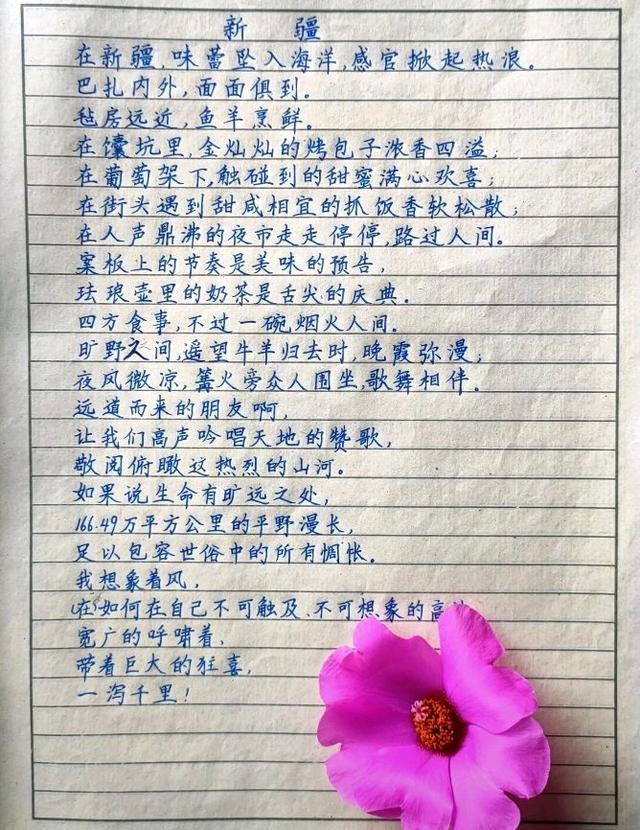 新 疆
在新疆,味蕾坠入海洋,感官掀起热浪。
巴扎内外,面面俱到。
毡房远近,鱼羊烹鲜。
在馕坑里,金灿灿的烤包子浓香四溢;
在葡萄架下,触碰到的甜蜜满心欢喜;
在街头遇到甜咸相宜的抓饭香软松散;
在人声鼎沸的夜市走走停停,路过人间。
案板上的节奏是美味的预告,
珐琅壶里的奶茶是舌尖的庆典。
四方食事,不过一碗烟火人间。
旷野之间,遥望牛羊归去时,晚霞弥漫;
夜风微凉,篝火旁众人围坐,歌舞相伴。
远道而来的朋友啊,
让我们高声吟唱天地的赞歌,
敬阅俯瞰这热烈的山河。
如果说生命有旷远之处,
166.49万平方公里的平野漫长,
足以包容世俗中的所有惆怅。
我想象着风,
在如何在自己不可触及、不可想象的高
宽广的呼啸着,
带着巨大的狂喜,
一泻千里!